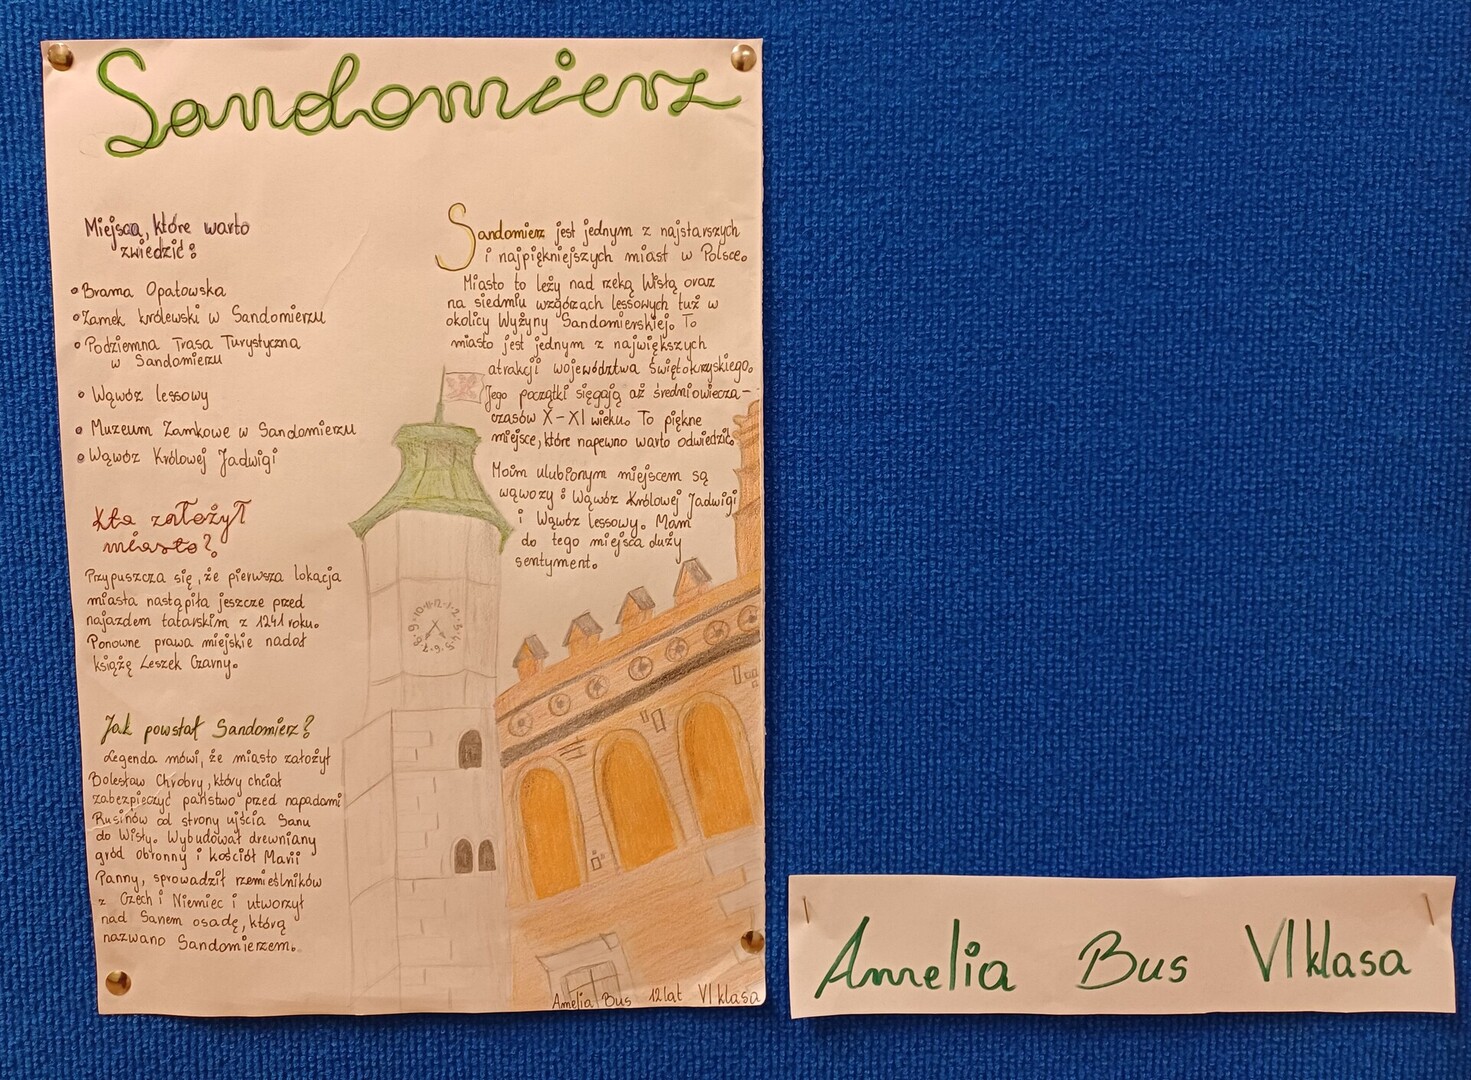 Sandomierz
Miejsca, które warto
zwiedzić:
Brama Opatowska
Zamek królewski w Sandomierzu
Podziemna Trasa Turystyczna
w Sandomierzu
Wąwóz lessowy
Muzeum Zamkowe w Sandomierzu
Wąwóz Królowej Jadwigi
Kto założył
miasto?
Przypuszcza się, że pierwsza lokacja
miasta nastąpiła jeszcze przed
najazdem tatarskim z 1241 roku.
Ponowne prawa miejskie nadał
książę Leszek Czarny.
Jak powstał Sandomierz?
Legenda mówi, że miasto założył
Bolesław Chrobry, który chciał
zabezpieczyć państwo przed napadami
Rusinów od strony ujścia Sanu
do Wisły. Wybudował drewniany
gród obronny i kościół Marii
Panny, sprowadził rzemieślników
z Czech i Niemiec i utworzył
nad Sanem osadę, którą
nazwano Sandomierzem.
Sandomierz jest jednym z najstarszych
i najpiękniejszych miast w Polsce.
Miasto to leży nad rzeką Wisłą oraz
na siedmiu wzgórzach lessowych tuż w
okolicy Wyżyny Sandomierskiej. To
miasto jest jednym z największych
atrakcji województwa Świętokrzyskiego.
Jego początki sięgają aż średniowiecza -
czasów X-XI wieku. To piękne
miejsce, które napewno warto odwiedzić.
Moim ulubionym miejscem są
wąwozy: Wąwóz Królowej Jadwigi
i Wąwóz lessowy. Mam
do tego miejsca duży
sentyment.
10 11 12 1 2 3 4 5 6 7 8 9
Amelia Bus 12 lat VI klasa
Amelia Bus VI klasa